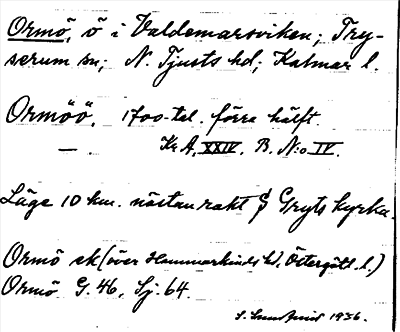 Ormö, ö i Valdemarsviken; Try-
serum sn; N. Tjusts hd; Kalmar l.
Ormöö. 1700-tal. förra hälft
— . Kr. A. XXIV. B. N:o IV.
Läge 10 km. nästan rakt S Gryts kyrka.
Ormö ek (över Hammarkinds hd, Östergötl. l.)
Ormö G. 46. Sj. 64.
1936.